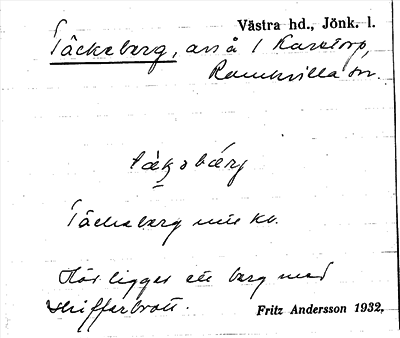 Västra hd., Jönk. l.
Täckeberg, avs å 1 Karstorp,
Ramkvilla sn.
tàkəbárj
Täckeberg
Här ligger ett berg med
skifferbrott.
Fritz Andersson 1932.